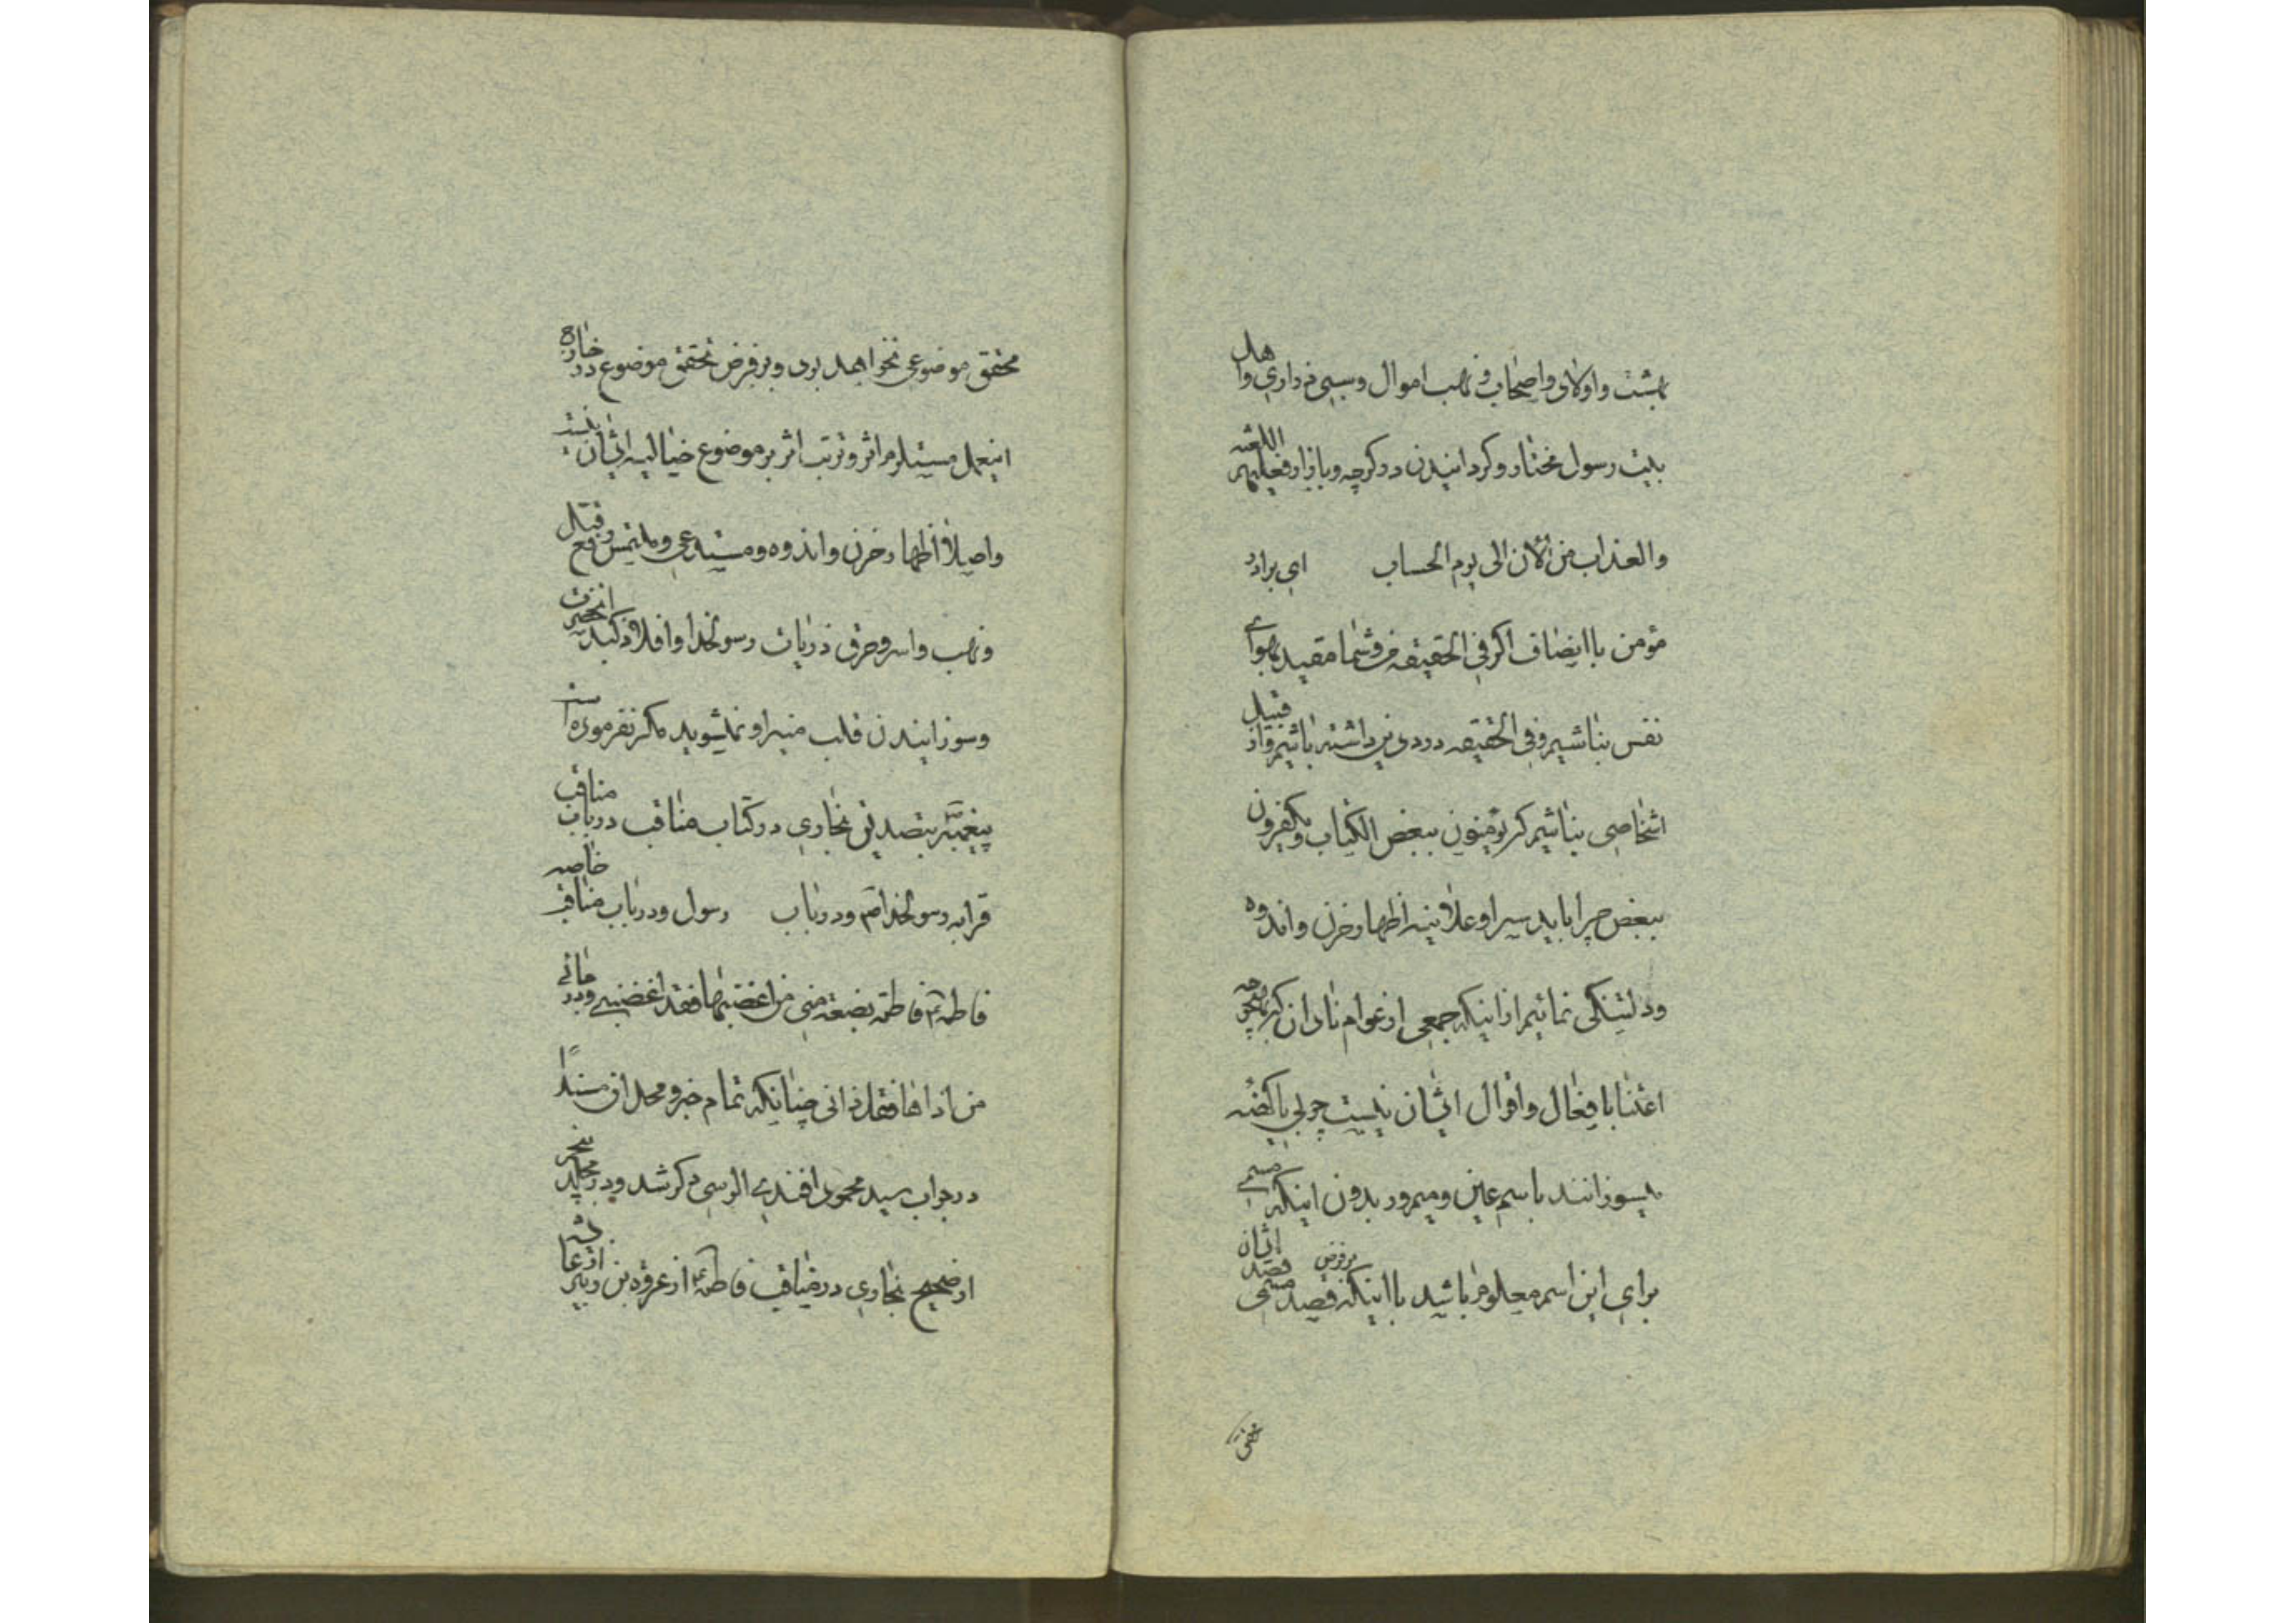 بهشت و اولاد و اصحاب و نهب اموال و سبی ذراری و اهل
بیت رسول مختار و کردانیدن در کوچه و بازار فعلیهم اللعنه
والعذاب من الآن الی یوم الحساب ای برادر
مؤمن با انصاف اکر فی الحقیقه من و شما مقید بهوای
نفس نباشیم و فی الحقیقه درد دین داشته باشیم و از قبیل
اشخاصی نباشیم که یؤمنون ببعض الکتاب و یکفرون
ببعض چرا باید سرا و علانیه اظهار حزن و اندوه
و دلتنکی نمائیم از اینکه جمعی از عوام نادان که بهیچوجه
اعتنا بافعال و اقوال ایشان نیست چوبی یا کهنه
بسوزانند باسم عین و میم و ر بدون اینکه مسمی
برای این اسم معلوم باشد با اینکه قصد مسمی بر فرض قصد ایشان
محقق موضوعی نخواهد بود و بر فرض تحقق موضوع در خارج
اینعمل مستلزم اثر و ترتب اثر بر موضوع خیالیه ایشان نیست
و اصلا اظهار حزن و اندوه و مستدعی و ملتمس رفع و قتل
و نهب و اسر و حرق ذریات رسولخدا و افلاذ کبد آنحضرت
و سوزانیدن قلب منیر او نمیشوید مکر نفرموده است
پیغمبر بتصدیق بخاری در کتاب مناقب در باب مناقب
قرابه رسولخدا و در باب رسول و در باب مناقب خاصه
فاطمه فاطمة بضعة منی من اغضبها فقد اغضبنی و در جائی
من اذاها فقد اذانی چنانکه تمام خبر و محل آن مسندا
در جواب سید محمود افندی الوسی ذکر شد و در محل دیگر
از صحیح بخاری در مناقب فاطمه از عروه بن زبیر از عایشه